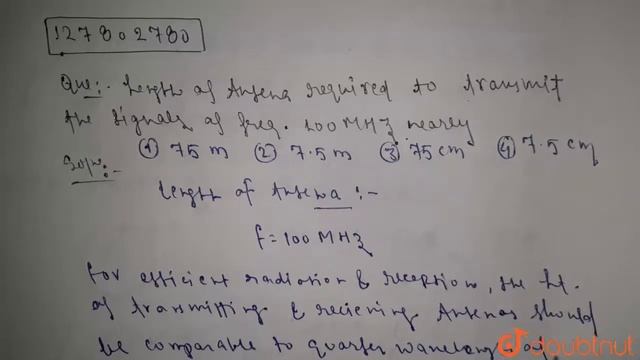 127802780
Que:- Length of Antena required to transmit
the signals of freq. 100 MHz nearly
① 75 m ② 7.5 m ③ 75 cm ④ 7.5 cm
Soln:-
Length of Antena :-
f = 100 MHz
for efficient radiation & reception, the ht.
of transmitting & recieving Antenas should
be comparable to quarter wavelength of
doubtnut